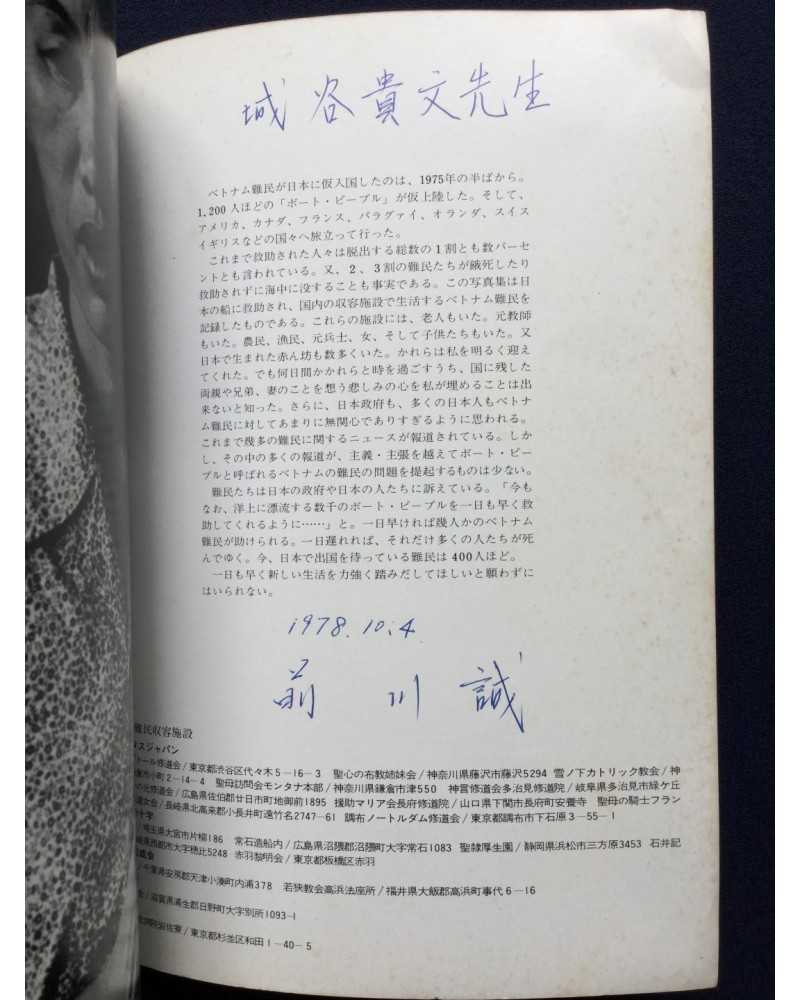 城谷貴文先生
ベトナム難民が日本に仮入国したのは、1975年の半ばから。
1,200人ほどの「ボート・ピープル」が仮上陸した。そして、
アメリカ、カナダ、フランス、パラグァイ、オランダ、スイス
イギリスなどの国々へ旅立って行った。
これまで救助された人々は脱出する総数の1割とも数パーセ
ントとも言われている。又、2、3割の難民たちが餓死したり
救助されずに海中に没することも事実である。この写真集は日
本の船に救助され、国内の収容施設で生活するベトナム難民を
記録したものである。これらの施設には、老人もいた。元教師
もいた。農民、漁民、元兵士、女、そして子供たちもいた。又
日本で生まれた赤ん坊も数多くいた。かれらは私を明るく迎え
てくれた。でも何日間かかれらと時を過ごすうち、国に残した
両親や兄弟、妻のことを想う悲しみの心を私が埋めることは出
来ないと知った。さらに、日本政府も、多くの日本人もベトナ
ム難民に対してあまりに無関心でありすぎるように思われる。
これまで幾多の難民に関するニュースが報道されている。しか
し、その中の多くの報道が、主義・主張を越えてボート・ピー
プルと呼ばれるベトナムの難民の問題を提起するものは少ない。
難民たちは日本の政府や日本の人たちに訴えている。「今も
なお、洋上に漂流する数千のボート・ピープルを一日も早く救
助してくれるように……」と。一日早ければ幾人かのベトナム
難民が助けられる。一日遅れれば、それだけ多くの人たちが死
んでゆく。今、日本で出国を待っている難民は400人ほど。
一日も早く新しい生活を力強く踏みだしてほしいと願わずに
はいられない。
1978.10.4
前川誠
難民収容施設
スジャパン
トール修道会/東京都渋谷区代々木5-16-3 聖心の布教姉妹会/神奈川県藤沢市藤沢5294 雪ノ下カトリック教会/神
市小町2-14-4 聖母訪問会モンタナ本部/神奈川県鎌倉市津550 神言修道会多治見修道院/岐阜県多治見市緑ケ丘
の元修道会/広島県佐伯郡廿日市町地御前1895 援助マリア会長府修道院/山口県下関市長府町安養寺 聖母の騎士フラン
女会/長崎県北高来郡小長井町遠竹名2747-61 調布ノートルダム修道会/東京都調布市下石原3-55-1
十字
埼玉県大宮市片柳186 常石造船内/広島県沼隈郡沼隈町大字常石1083 聖隷厚生園/静岡県浜松市三方原3453 石井記
県西都市大字穂北5248 赤羽黎明会/東京都板橋区赤羽
成会
千葉県安房郡天津小湊町内浦378 若狭教会高浜法座所/福井県大飯郡高浜町事代6-16
/滋賀県蒲生郡日野町大字別所1093-1
佐寮/東京都杉並区和田1-40-5